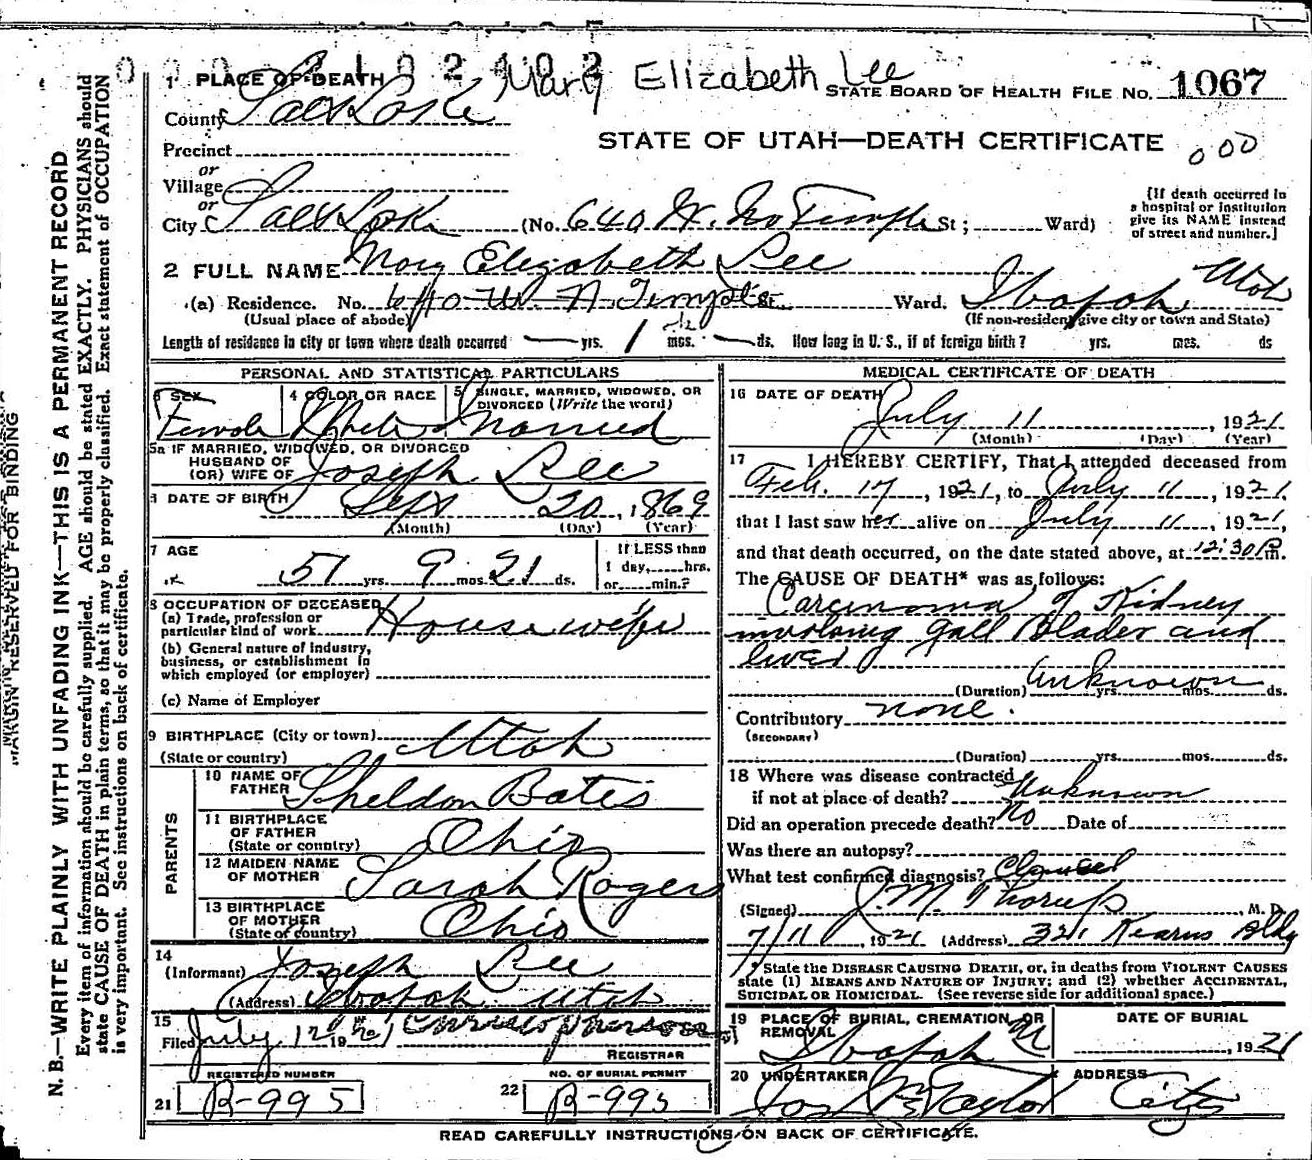 1 PLACE OF DEATH
Mary Elizabeth Lee
STATE BOARD OF HEALTH FILE No. 1067
County Salt Lake
STATE OF UTAH—DEATH CERTIFICATE
000
Precinct
or
Village
or
City Salt Lake (No. 640 W. No Temple St; Ward)
[If death occurred in a hospital or institution give its NAME instead of street and number.]
2 FULL NAME Mary Elizabeth Lee
(a) Residence. No. 640 W. N Temple St. Ward. Ibapah, Utah
(Usual place of abode) (If non-resident give city or town and State)
Length of residence in city or town where death occurred — yrs. 1 1/2 mos. — ds. How long in U. S., if of foreign birth? yrs. mos. ds
PERSONAL AND STATISTICAL PARTICULARS
3 SEX
Female
4 COLOR OR RACE
White
5 SINGLE, MARRIED, WIDOWED, OR DIVORCED (Write the word)
Married
5a IF MARRIED, WIDOWED, OR DIVORCED
HUSBAND OF
(OR) WIFE OF Joseph Lee
DATE OF BIRTH Sept 20, 1869
(Month) (Day) (Year)
7 AGE
51 yrs. 9 mos. 21 ds.
If LESS than
1 day, hrs.
or min.?
8 OCCUPATION OF DECEASED
(a) Trade, profession or
particular kind of work Housewife
(b) General nature of industry,
business, or establishment in
which employed (or employer)
(c) Name of Employer
9 BIRTHPLACE (City or town)
(State or country) Utah
PARENTS
10 NAME OF
FATHER Sheldon Bates
11 BIRTHPLACE
OF FATHER
(State or country) Ohio
12 MAIDEN NAME
OF MOTHER Sarah Rogers
13 BIRTHPLACE
OF MOTHER
(State or country) Ohio
14
(Informant) Joseph Lee
(Address) Ibapah Utah
15
Filed July 12 1921
REGISTRAR
REGISTERED NUMBER
21 B-995
NO. OF BURIAL PERMIT
22 B-995
MEDICAL CERTIFICATE OF DEATH
16 DATE OF DEATH July 11, 1921
(Month) (Day) (Year)
17 I HEREBY CERTIFY, That I attended deceased from
Feb. 17, 1921, to July 11, 1921,
that I last saw her alive on July 11, 1921,
and that death occurred, on the date stated above, at 12:30 P.m.
The CAUSE OF DEATH* was as follows:
Carcinoma of Kidney
involving gall Blader and
liver
(Duration) Unknown yrs. mos. ds.
Contributory none.
(SECONDARY)
(Duration) yrs. mos. ds.
18 Where was disease contracted
if not at place of death? Unknown
Did an operation precede death? No Date of
Was there an autopsy?
What test confirmed diagnosis? Clinical
(Signed) J. M. Thorup, M. D.
7/11, 1921 (Address) 321 Kearns Bldg
* State the DISEASE CAUSING DEATH, or, in deaths from VIOLENT CAUSES
state (1) MEANS AND NATURE OF INJURY; and (2) whether ACCIDENTAL,
SUICIDAL OR HOMICIDAL. (See reverse side for additional space.)
19 PLACE OF BURIAL, CREMATION, OR
REMOVAL
Ibapah U
DATE OF BURIAL
, 1921
20 UNDERTAKER
Jos Wm Taylor
ADDRESS
City
READ CAREFULLY INSTRUCTIONS ON BACK OF CERTIFICATE.
MARGIN RESERVED FOR BINDING
N. B.—WRITE PLAINLY WITH UNFADING INK—THIS IS A PERMANENT RECORD
Every item of information should be carefully supplied. AGE should be stated EXACTLY. PHYSICIANS should
state CAUSE OF DEATH in plain terms, so that it may be properly classified. Exact statement of OCCUPATION
is very important. See instructions on back of certificate.